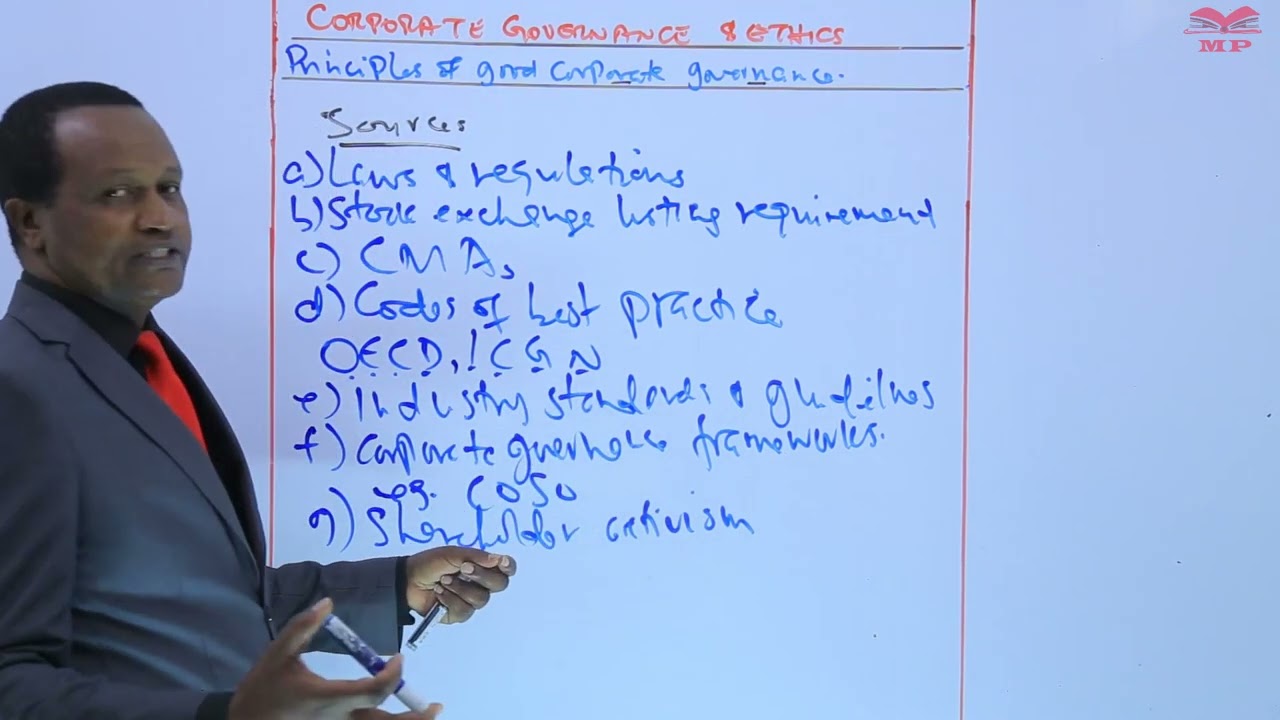 CORPORATE GOVERNANCE & ETHICS
MP
Principles of good corporate governance.
Sources
a) Laws & regulations
b) Stock exchange listing requirement
c) CMA,
d) Codes of best practice
OECD, ICGN
e) Industry standards & guidelines
f) Corporate governance frameworks.
eg. COSO
g) Shareholder activism